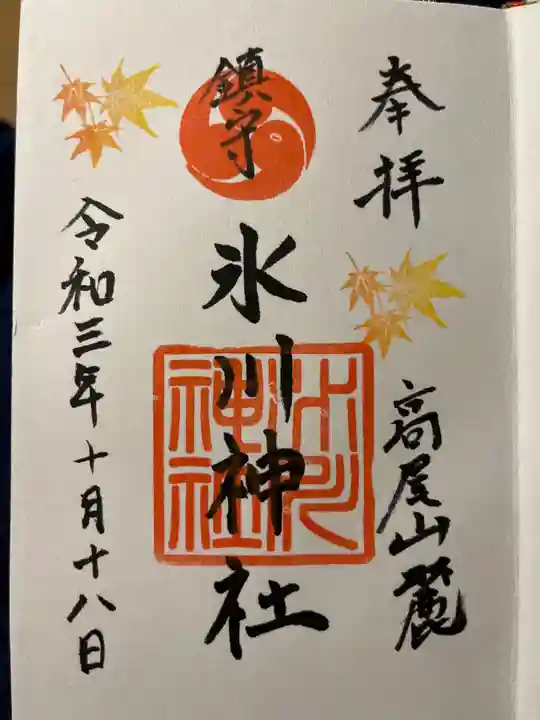 奉拝
高尾山麓
鎮守
氷川神社
氷川
神社
令和三年十月十八日